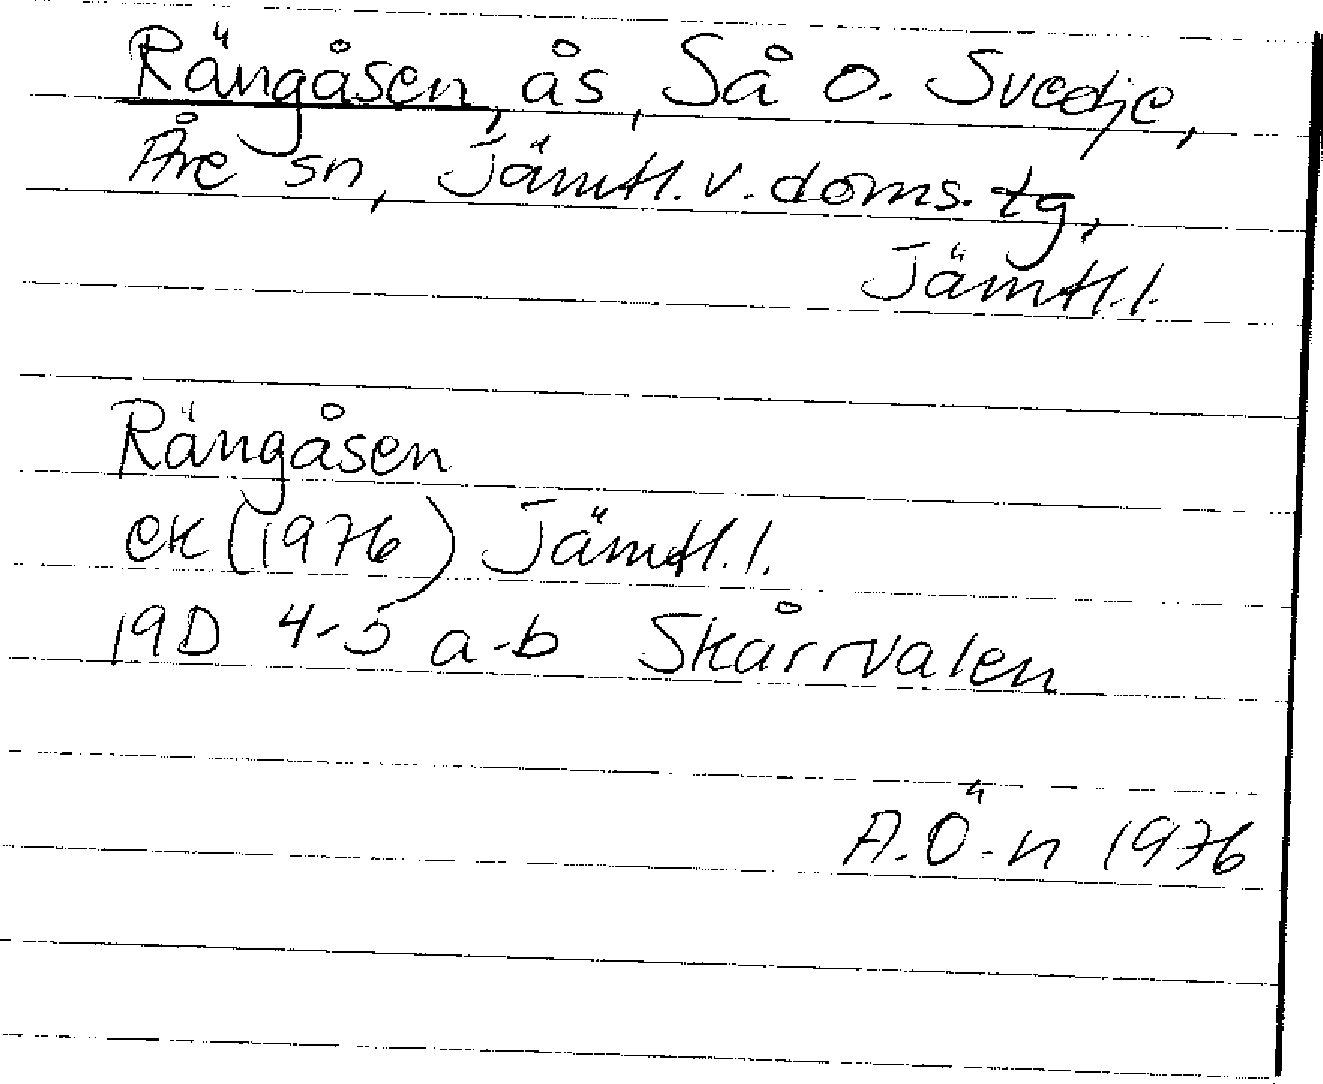 Rängåsen, ås, Så o. Svedje,
Åre sn, Jämtl. v. doms. tg,
Jämtl. l.
Rängåsen
ek (1976) Jämtl. l.
19D 4-5 a-b Skårrvalen
A. Ö-n 1976